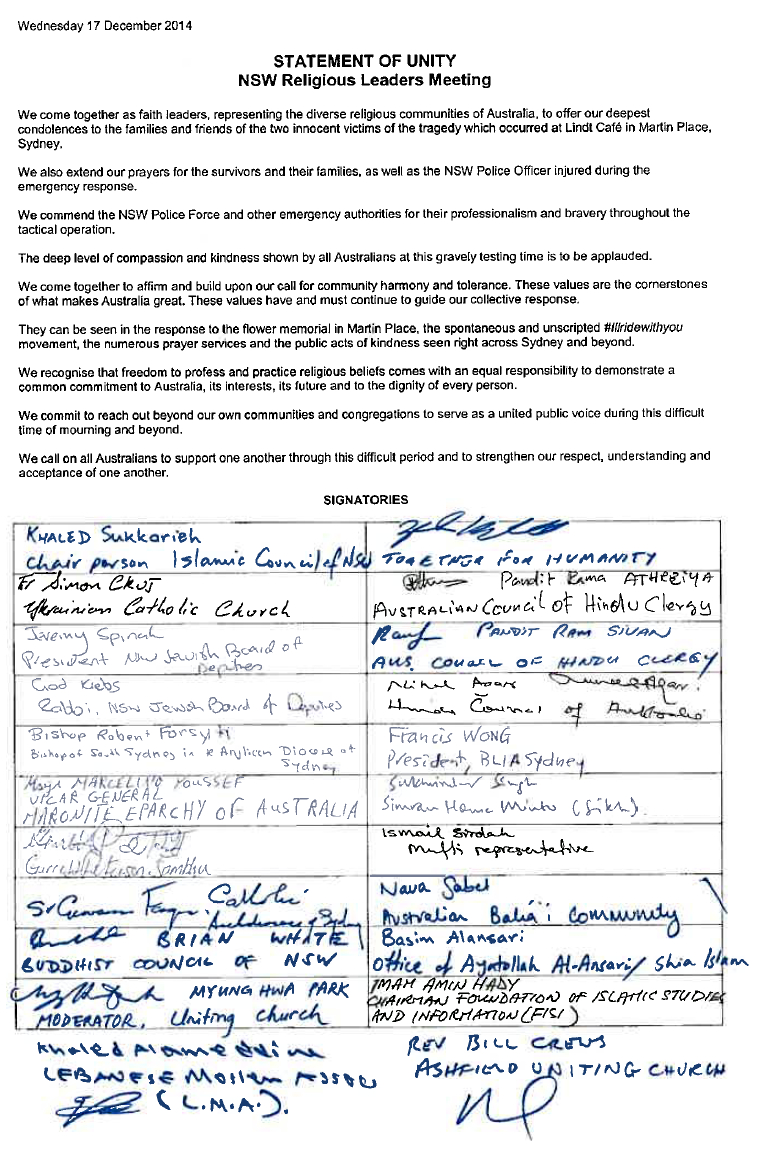 Wednesday 17 December 2014
STATEMENT OF UNITY
NSW Religious Leaders Meeting
We come together as faith leaders, representing the diverse religious communities of Australia, to offer our deepest
condolences to the families and friends of the two innocent victims of the tragedy which occurred at Lindt Café in Martin Place,
Sydney.
We also extend our prayers for the survivors and their families, as well as the NSW Police Officer injured during the
emergency response.
We commend the NSW Police Force and other emergency authorities for their professionalism and bravery throughout the
tactical operation.
The deep level of compassion and kindness shown by all Australians at this gravely testing time is to be applauded.
We come together to affirm and build upon our call for community harmony and tolerance. These values are the cornerstones
of what makes Australia great. These values have and must continue to guide our collective response.
They can be seen in the response to the flower memorial in Martin Place, the spontaneous and unscripted #illridewithyou
movement, the numerous prayer services and the public acts of kindness seen right across Sydney and beyond.
We recognise that freedom to profess and practice religious beliefs comes with an equal responsibility to demonstrate a
common commitment to Australia, its interests, its future and to the dignity of every person.
We commit to reach out beyond our own communities and congregations to serve as a united public voice during this difficult
time of mourning and beyond.
We call on all Australians to support one another through this difficult period and to strengthen our respect, understanding and
acceptance of one another.
SIGNATORIES
KHALED Sukkarieh
Chair person Islamic Council of NSW
TOGETHER FOR HUMANITY
Fr Simon CKUJ
Ukrainian Catholic Church
Pandit Rama ATHREIYA
AUSTRALIAN Council of Hindu Clergy
Jeremy Spinak
President NSW Jewish Board of
Deputies
PANDIT RAM SIVAN
AUS. COUNCIL OF HINDU CLERGY
Rabbi, NSW Jewish Board of Deputies
Council of Australia
Bishop Robert Forsyth
Bishop of South Sydney in the Anglican Diocese of
Sydney
Francis WONG
President, BLIA Sydney
MARCELINO YOUSSEF
VICAR GENERAL
MARONITE EPARCHY OF AUSTRALIA
(Sikh).
Ismail
Mufti representative
Catholic
Archdiocese of Sydney
Australian Baha'i Community
BRIAN WHITE
BUDDHIST COUNCIL OF NSW
Basim Alansari
Office of Ayatollah Al-Ansari/ Shia Islam
MYUNG HWA PARK
MODERATOR, Uniting church
IMAM AMIN HADY
CHAIRMAN FOUNDATION OF ISLAMIC STUDIES
AND INFORMATION (FISI)
Khaled Alameddine
LEBANESE Moslem ASSOC
(L.M.A).
REV BILL CREWS
ASHFIELD UNITING CHURCH